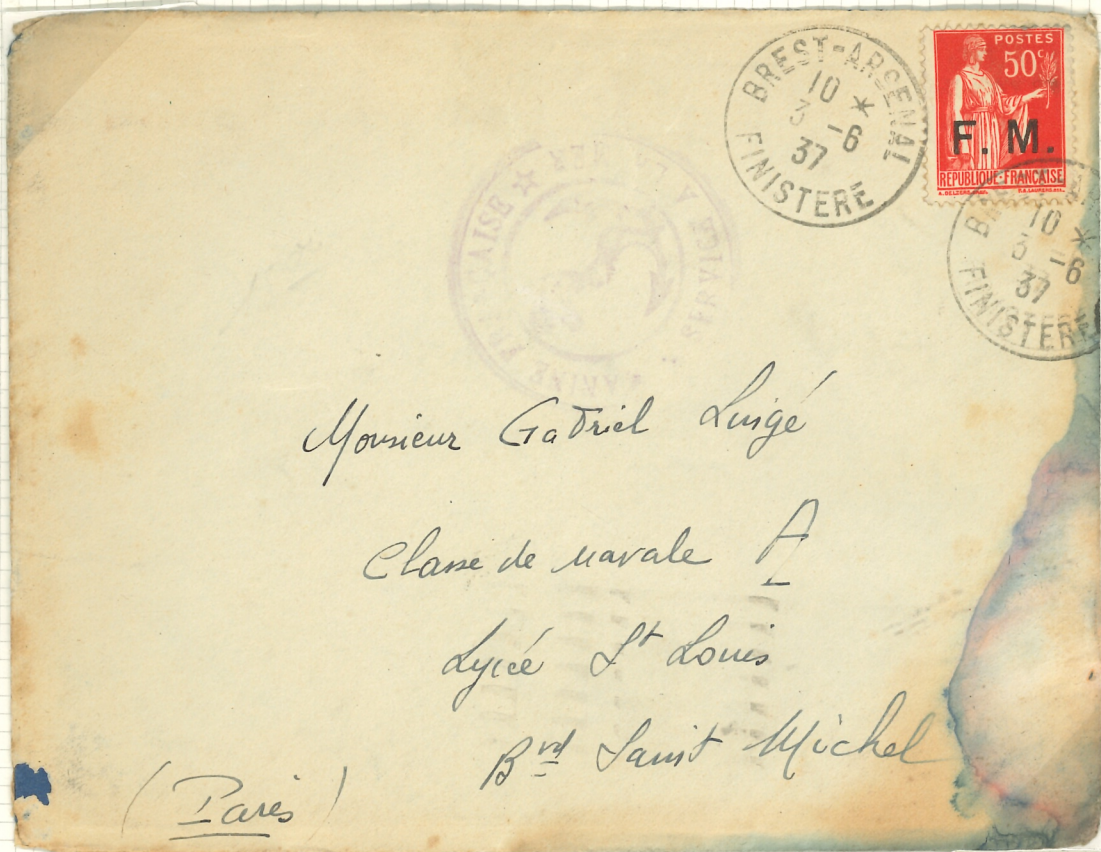 BREST-ARSENAL
10 *
3 -6
37
FINISTERE
POSTES
50c
F. M.
REPUBLIQUE FRANÇAISE
10 *
3 -6
37
FINISTERE
SERVICE A LA MER
MARINE FRANÇAISE
Monsieur Gabriel Luigé
Classe de navale A
Lycée St Louis
Bvd Saint Michel
(Paris)